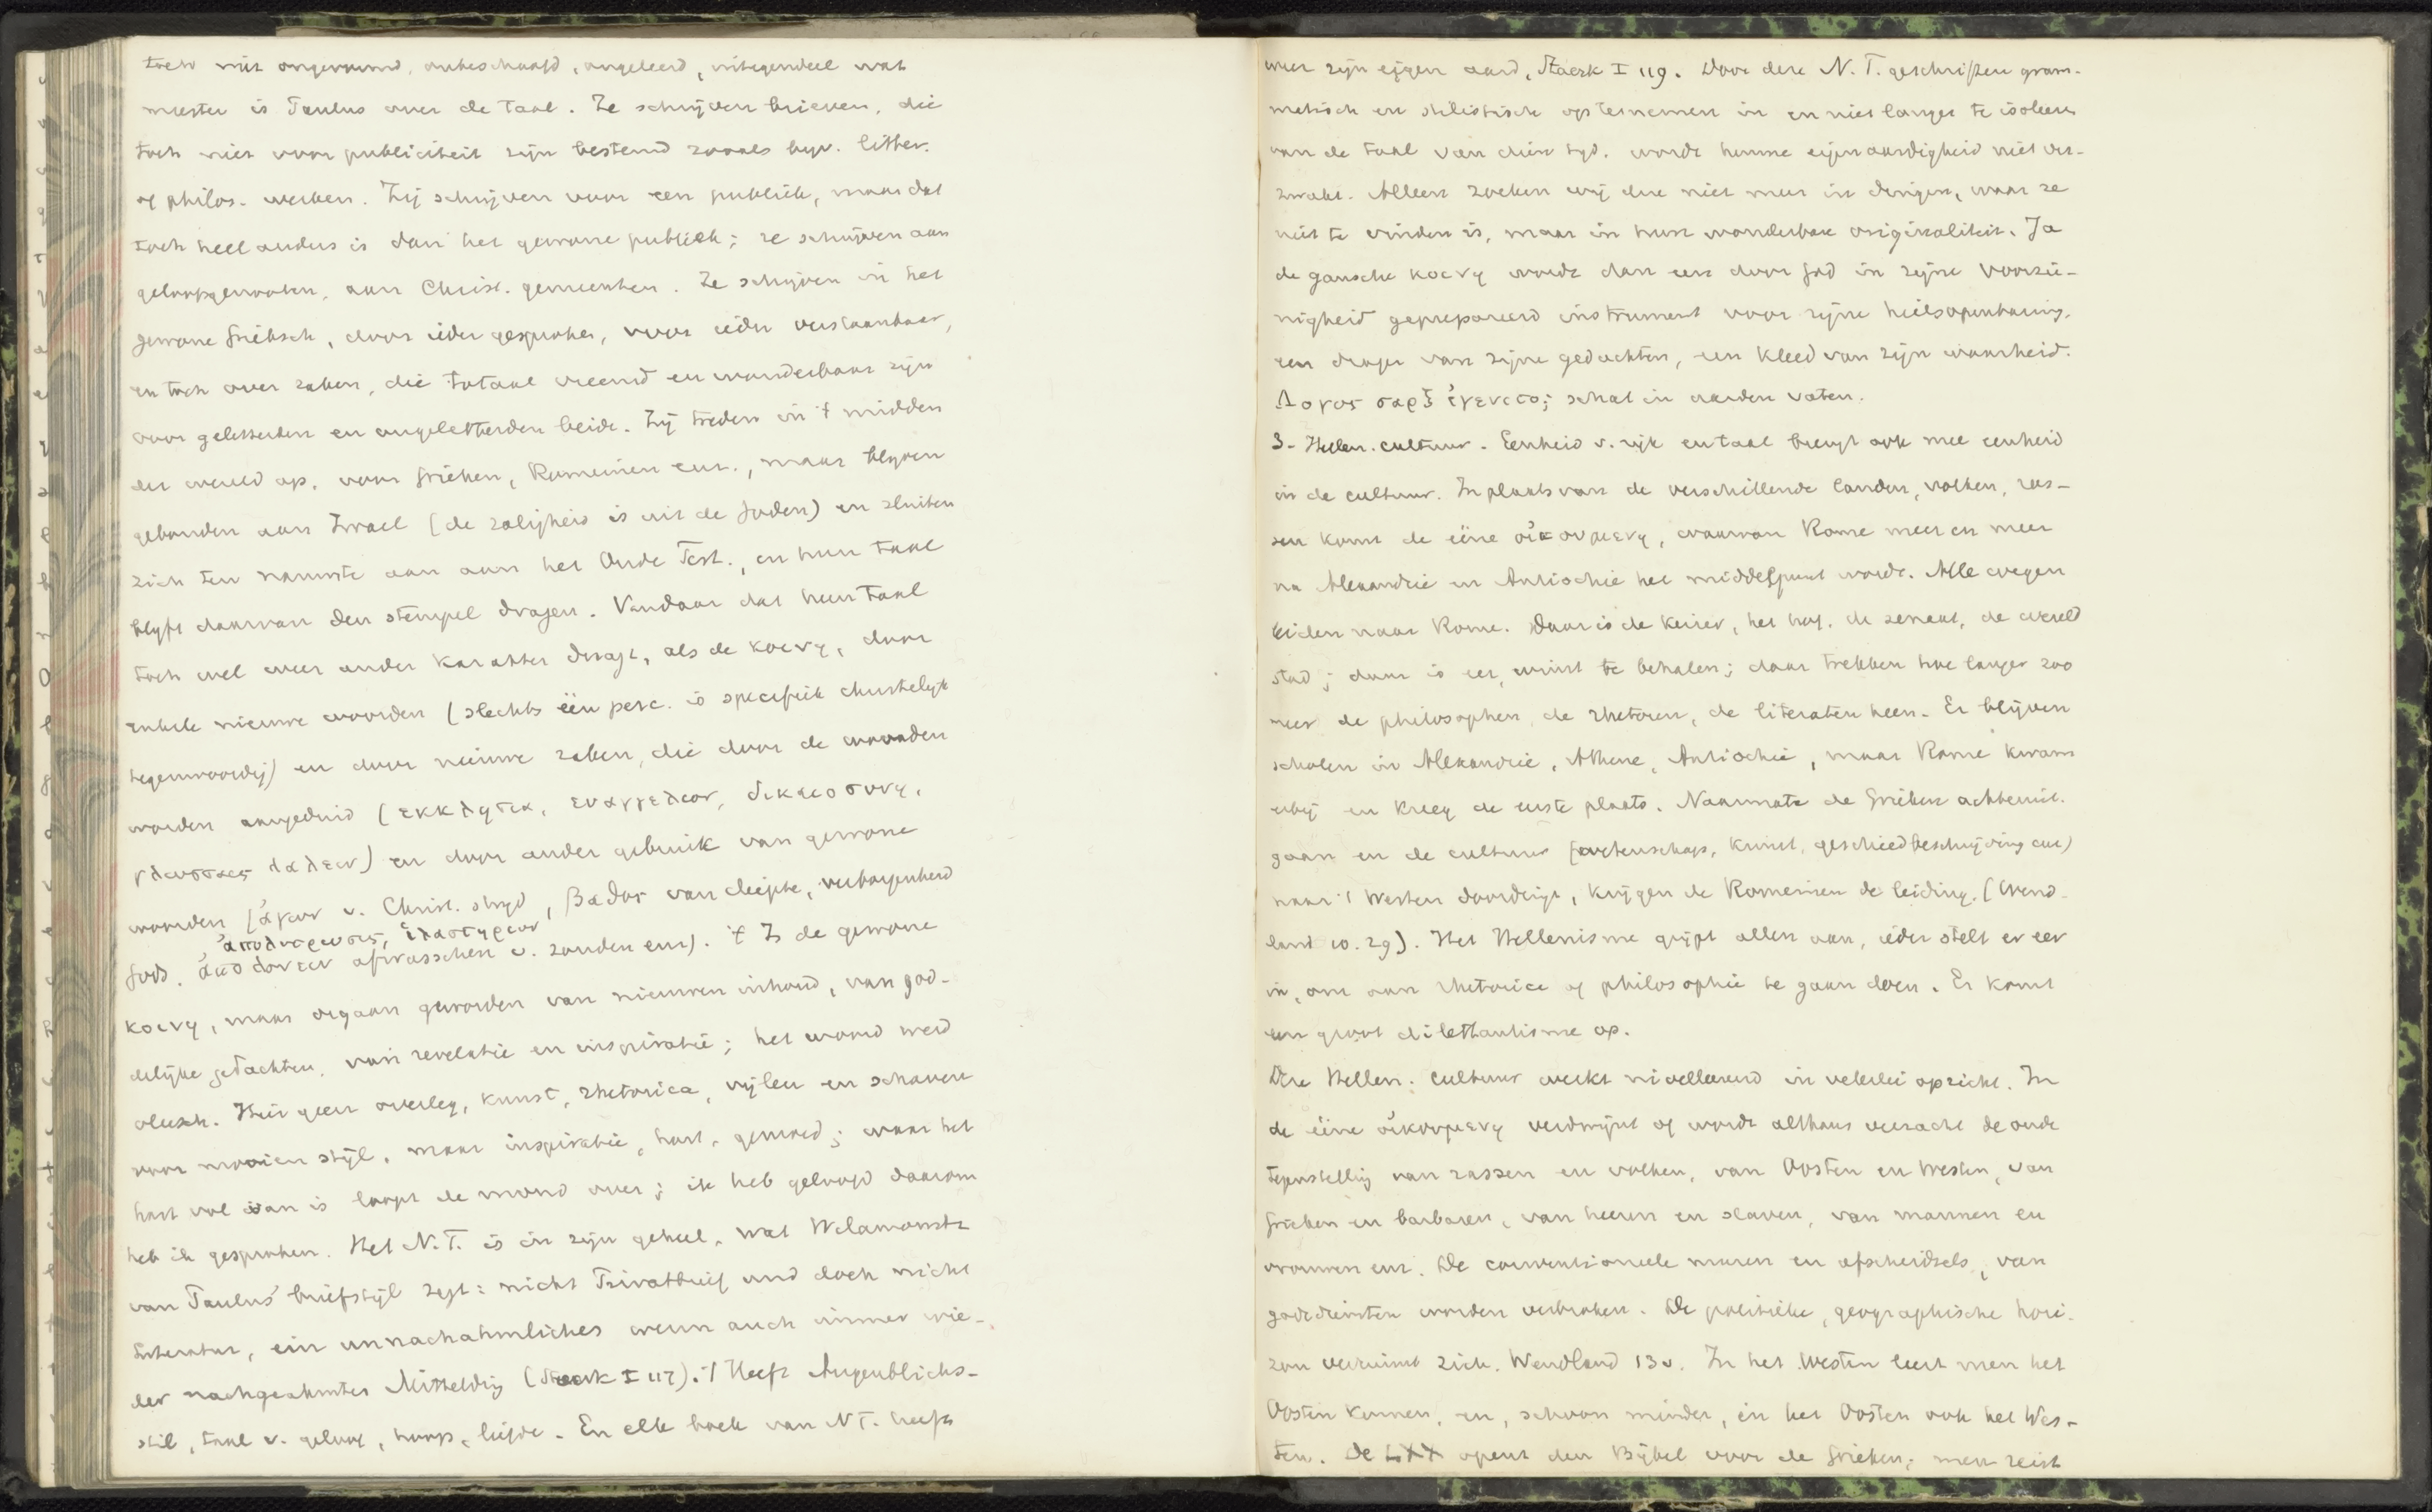 toch niet ongevormd, onbeschaafd, ongeleerd, integendeel wat
meester is Paulus over de taal. Ze schrijven brieven, die
toch niet voor publiciteit zijn bestemd zooals byv. litter.
of philos. werken. Zij schrijven voor een publiek, maar dat
toch heel anders is dan het gewone publiek; ze schrijven aan
geloofsgenooten, aan Christ. gemeenten. Ze schrijven in het
gewone Grieksch, door ieder gesproken, voor ieder verstaanbaar,
en toch over zaken, die totaal vreemd en wonderbaar zijn
voor geletterden en ongeletterden beide. Zij treden in 't midden
der wereld op, voor Grieken, Romeinen enz., maar blyven
gebonden aan Israel (de zaligheid is uit de Joden) en sluiten
zich ten nauwste aan aan het Oude Test., en hun taal
blyft daarvan den stempel dragen. Vandaar dat hun taal
toch wel weer ander karakter draagt, als de κοινη, door
enkele nieuwe woorden (slechts één perc. is specifiek christelyk
tegenwoordig) en door nieuwe zaken, die door de woorden
worden aangeduid (εκκλησια, ευαγγελιον, δικαιοσυνη,
γλωσσαις λαλειν) en door ander gebruik van gewone
woorden (ἀγων v. Christ. stryd, βαθος van diepte, verborgenheid
ἀπολυτρωσις, ἱλαστηριον
Gods, afwasschen v. zonden enz). 't Is de gewone
κοινη, maar orgaan geworden van nieuwen inhoud, van god-
delijke gedachten, van revelatie en inspiratie; het woord werd
vleesch. Hier geen overleg, kunst, rhetorica, vijlen en schaven
voor mooien stijl, maar inspiratie, hart, gemoed; waar het
hart vol van is loopt de mond over; ik heb geloofd daarom
heb ik gesproken. Het N.T. is in zijn geheel, wat Wilamowitz
van Paulus' briefstijl zegt: nicht Privatbrief und doch nicht
Literatur, ein unnachahmliches wenn auch immer wie-
der nachgeahmtes Mittelding (Staerk I 117). 't Heeft Augenblicks-
stil, taal v. geloof, hoop, liefde. En elk boek van N T. heeft
weer zijn eigen aard, Staerk I 119. Door deze N.T. geschriften gram-
matisch en stilistisch op te nemen in en niet langer te isoleeren
van de taal van dien tyd, wordt hunne eigenaardigheid niet ver-
zwakt. Alleen zoeken wij die niet meer in dingen, waar ze
niet te vinden is, maar in hun wonderbare originaliteit. Ja
de gansche κοινη wordt dan een door God in zijne voorzie-
nigheid geprepareerd instrument voor zijne heilsopenbaring,
een drager van zijne gedachten, een kleed van zijn waarheid.
Λογος σαρξ ἐγενετο; schat in aarden vaten.
3. Hellen. cultuur. Eenheid v. rijk en taal brengt ook mee eenheid
in de cultuur. In plaats van de verschillende landen, volken, ras-
sen komt de ééne οἰκουμενη, waarvan Rome meer en meer
na Alexandrie en Antiochie het middelpunt wordt. Alle wegen
leiden naar Rome. Daar is de keizer, het hof, de senaat, de wereld
stad; daar is eer, winst te behalen; daar trekken hoe langer zoo
meer de philosophen, de rhetoren, de literaten heen. Er blijven
scholen in Alexandrie, Athene, Antiochie, maar Rome kwam
erbij en kreeg de eerste plaats. Naarmate de Grieken achteruit-
gaan en de cultuur (wetenschap, kunst, geschiedbeschrijving enz)
naar 't Westen doordringt, krijgen de Romeinen de leiding. (Wend-
land 10. 29). Het Hellenisme grijpt allen aan, ieder stelt er eer
in, om aan rhetorica of philosophie te gaan doen. Er komt
een groot dilettantisme op.
Deze Hellen. cultuur werkt nivelleerend in velerlei opzicht. In
de ééne οἰκουμενη verdwijnt of wordt althans verzacht de oude
tegenstelling van rassen en volken, van Oosten en Westen, van
Grieken en barbaren, van heeren en slaven, van mannen en
vrouwen enz. De conventioneele muren en afscheidsels, van
godsdiensten worden verbroken. De politieke, geographische hori-
zon verruimt zich. Wendland 13v. In het Westen leert men het
Oosten kennen, en, schoon minder, in het Oosten ook het Wes-
ten. De LXX opent den Bijbel voor de Grieken; men reist